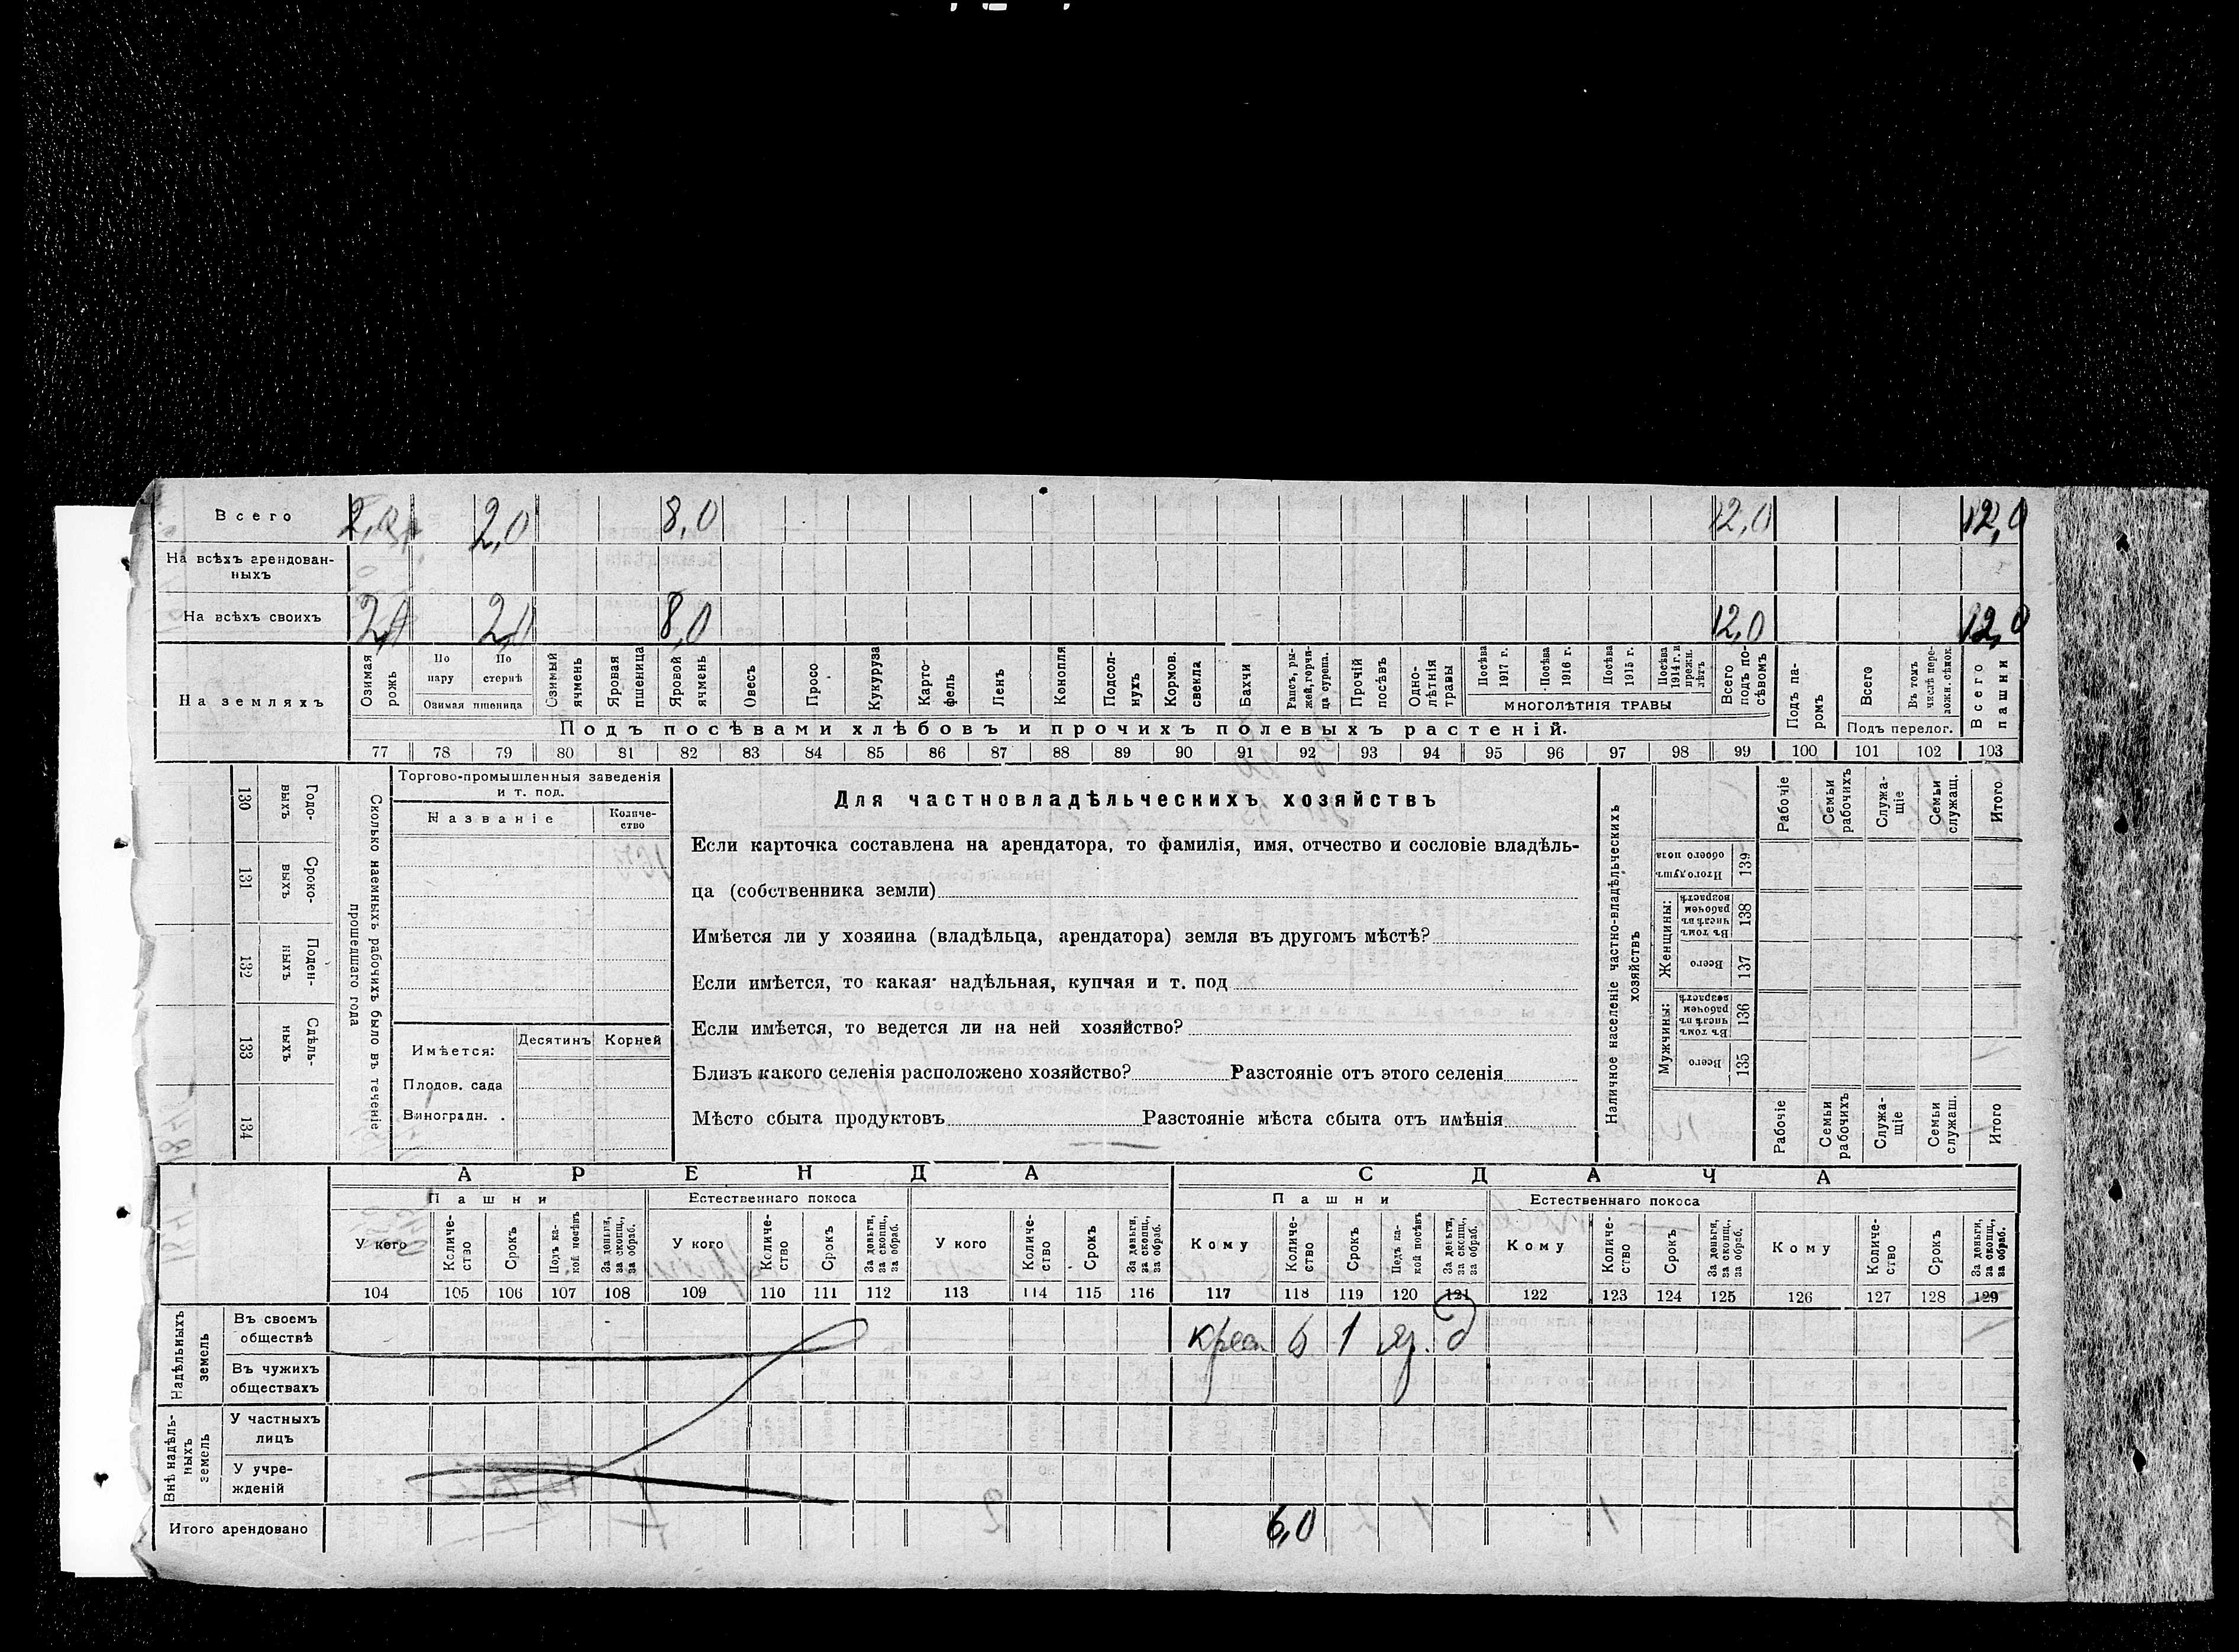 Всего 2,0 2,0 8,0 12,0 12,0
На всѣхъ арендован-
ныхъ
На всѣхъ своихъ 2,0 2,0 8,0 12,0 12,0
На земляхъ
Озимая рожь
По пару
По стернѣ
Озимая пшеница
Озимый ячмень
Яровая пшеница
Яровой ячмень
Овесъ
Просо
Кукуруза
Карто-
фель
Ленъ
Конопля
Подсол-
нухъ
Кормов. свекла
Бахчи
Рапсъ, ры-
жей, горчи-
ца сурепа.
Прочій посѣвъ
Одно-
лѣтнія травы
Посѣва 1917 г.
Посѣва 1916 г.
Посѣва 1915 г.
Посѣва 1914 г. и прежн. лѣтъ
МНОГОЛѢТНІЯ ТРАВЫ
Всего подъ по-
сѣвомъ
Подъ па-
ромъ
Всего
Въ томъ числѣ пере-
ложн. сѣнок.
Подъ перелог.
Всего пашни
Подъ посѣвами хлѣбовъ и прочихъ полевыхъ растеній.
77 78 79 80 81 82 83 84 85 86 87 88 89 90 91 92 93 94 95 96 97 98 99 100 101 102 103
130 Годо-
выхъ
131 Сроко-
выхъ
132 Поден-
ныхъ
133 Сдѣль-
ныхъ
134
Сколько наемныхъ рабочихъ было въ теченіе
прошедшаго года
Торгово-промышленныя заведенія
и т. под.
Названіе
Количе-
ство
Имѣется: Десятинъ Корней
Плодов. сада
Виноградн. .
Для частновладѣльческихъ хозяйствъ
Если карточка составлена на арендатора, то фамилія, имя, отчество и сословіе владѣль-
ца (собственника земли)
Имѣется ли у хозяина (владѣльца, арендатора) земля въ другомъ мѣстѣ?
Если имѣется, то какая: надѣльная, купчая и т. под
Если имѣется, то ведется ли на ней хозяйство?
Близъ какого селенія расположено хозяйство? Разстояніе отъ этого селенія
Мѣсто сбыта продуктовъ Разстояніе мѣста сбыта отъ имѣнія
Наличное населеніе частно-владѣльческихъ
хозяйствъ
Рабочіе
Семьи рабочихъ
Служа-
щіе
Семьи служащ.
Итого
Итого душъ обоего пола 139
Женщины:
Въ томъ числѣ въ рабочем возрастѣ 138
Всего 137
Мужчины:
Въ томъ числѣ въ рабочем возрастѣ 136
Всего 135
Рабочіе
Семьи рабочихъ
Служа-
щіе
Семьи служащ.
Итого
АРЕНДА СДАЧА
Пашни Естественнаго покоса Пашни Естественнаго покоса
У кого
Количе-
ство
Срокъ
Подъ ка-
кой посѣвъ
За деньги,
за скопщ.,
за обраб.
У кого
Количе-
ство
Срокъ
За деньги,
за скопщ.,
за обраб.
У кого
Количе-
ство
Срокъ
За деньги,
за скопщ.,
за обраб.
Кому
Количе-
ство
Срокъ
Подъ ка-
кой посѣвъ
За деньги,
за скопщ.,
за обраб.
Кому
Количе-
ство
Срокъ
За деньги,
за скопщ.,
за обраб.
Кому
Количе-
ство
Срокъ
За деньги,
за скопщ.,
за обраб.
104 105 106 107 108 109 110 111 112 113 114 115 116 117 118 119 120 121 122 123 124 125 126 127 128 129
Надѣльныхъ
земель
Въ своемъ
обществѣ
6 1 д
Въ чужихъ
обществахъ
Внѣ надѣль-
ныхъ
земель
У частныхъ
лицъ
У учре-
жденій
Итого арендовано 6,0